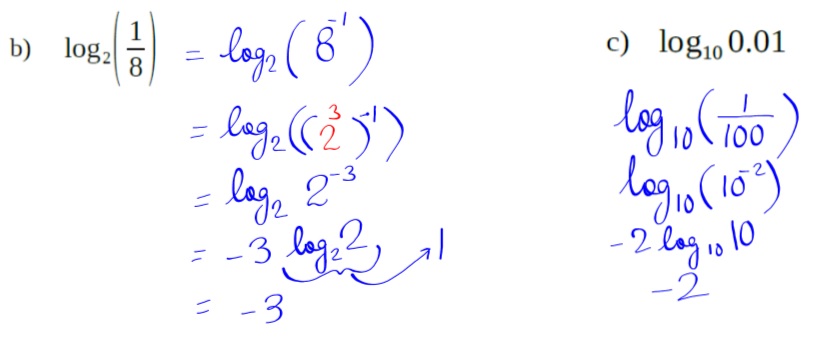 b) log₂(1/8) = log₂(8⁻¹)
= log₂((2³)⁻¹)
= log₂ 2⁻³
= -3 log₂2, 1
= -3
c) log₁₀ 0.01
log₁₀(1/100)
log₁₀(10⁻²)
-2 log₁₀ 10
-2